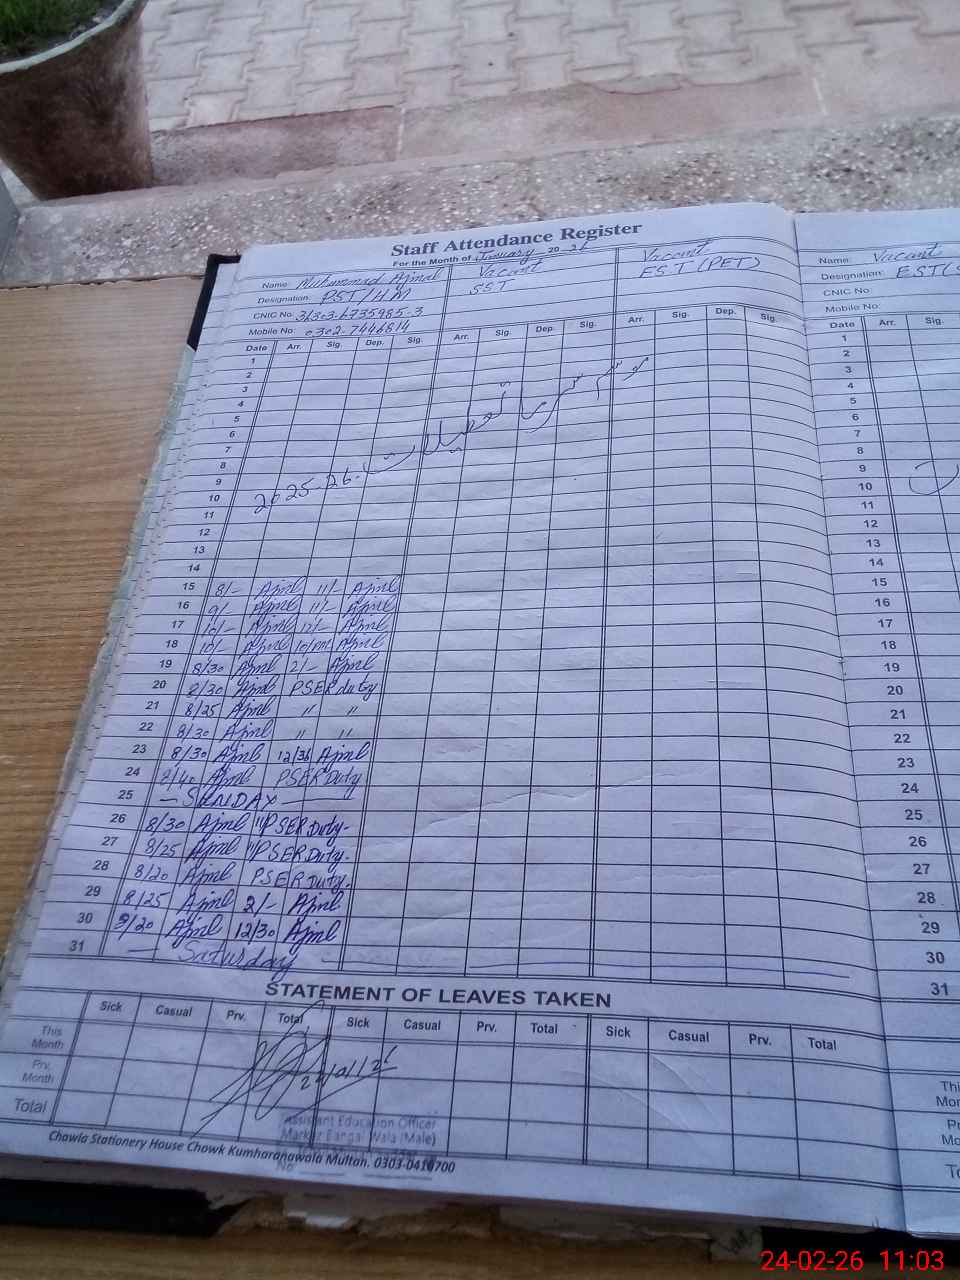 Staff Attendance Register
For the Month of January 2026
Name: Muhammad Ajmal Vacant Vacant
Designation: PST/HM SST EST (PET)
CNIC No:
Mobile No: 0302-7446814
Date Arr. Sig. Dep. Sig. Arr. Sig. Dep. Sig. Arr. Sig. Dep. Sig.
1
2
3
4
5
6
7
8
9
10
11
12
13
14
موسم سرما تعطیلات 2025-26
15 8/- Ajmal 11/- Ajmal
16 9/- Ajmal 11/- Ajmal
17 10/- Ajmal 12/- Ajmal
18 10/- Ajmal Ajmal
19 8/30 Ajmal 2/- Ajmal
20 8/30 Ajmal PSER duty
21 8/25 Ajmal " "
22 8/30 Ajmal " "
23 8/30 Ajmal Ajmal
24 8/40 Ajmal PSER Duty
25 — SUNDAY —
26 8/30 Ajmal "PSER Duty.
27 8/25 Ajmal "PSER Duty.
28 8/20 Ajmal PSER Duty.
29 8/25 Ajmal 2/- Ajmal
30 8/20 Ajmal 12/30 Ajmal
31 — Saturday —
STATEMENT OF LEAVES TAKEN
Sick Casual Prv. Total Sick Casual Prv. Total Sick Casual Prv. Total
This Month
Prv. Month
Total
Assistant Education Officer
(Male)
Chawla Stationery House Chowk Kumharanawala Multan. 0303-0410700
Name: Vacant
Designation: EST(S
CNIC No:
Mobile No:
Date Arr. Sig.
1
2
3
4
5
6
7
8
9
10
11
12
13
14
15
16
17
18
19
20
21
22
23
24
25
26
27
28
29
30
31
24-02-26 11:03